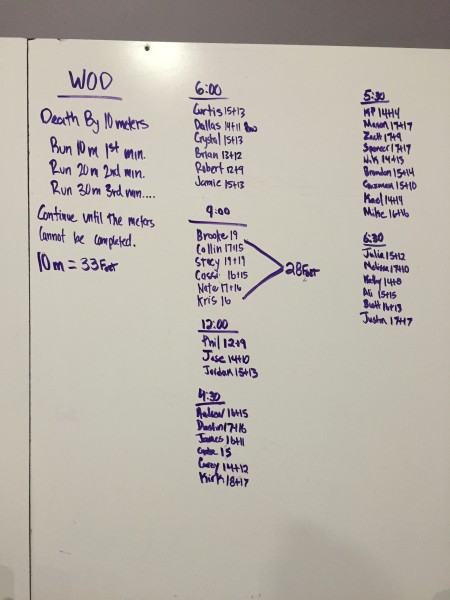 WOD
Death By 10 meters
Run 10m 1st min.
Run 20m 2nd min.
Run 30m 3rd min....
Continue until the meters
cannot be completed.
10m = 33 Feet
6:00
Curtis 15+13
Dallas 14+11 Row
Crystal 15+13
Brian 13+12
Robert 12+9
Jamie 15+13
9:00
Brooke 19
Collin 17+15
Stacy 19+19
Cassi 16+15
Nate 17+16
Kris 16
28 Feet
12:00
Phil 12+9
Jose 14+10
Jordan 15+13
4:30
Andrew 16+15
Dustin 17+16
James 16+11
15
Casey 14+12
Kirk 18+17
5:30
KP 14+14
Mason 17+17
Zach 17+9
Spencer 17+17
Nik 14+13
Brandon 15+14
Guzman 15+10
Kael 14+14
Mike 16+16
6:30
Julia 15+12
Melissa 17+10
Kathy 14+8
Ali 15+15
Brett 16+13
Justin 17+17